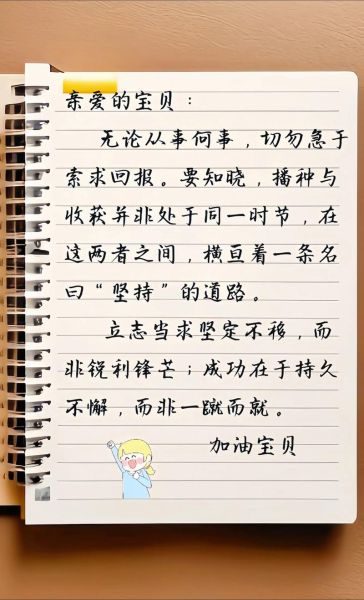 亲爱的宝贝：
无论从事何事，切勿急于
索求回报。要知晓，播种与
收获并非处于同一时节，在
这两者之间，横亘着一条名
曰“坚持”的道路。
立志当求坚定不移，而
非锐利锋芒；成功在于持久
不懈，而非一蹴而就。
加油宝贝